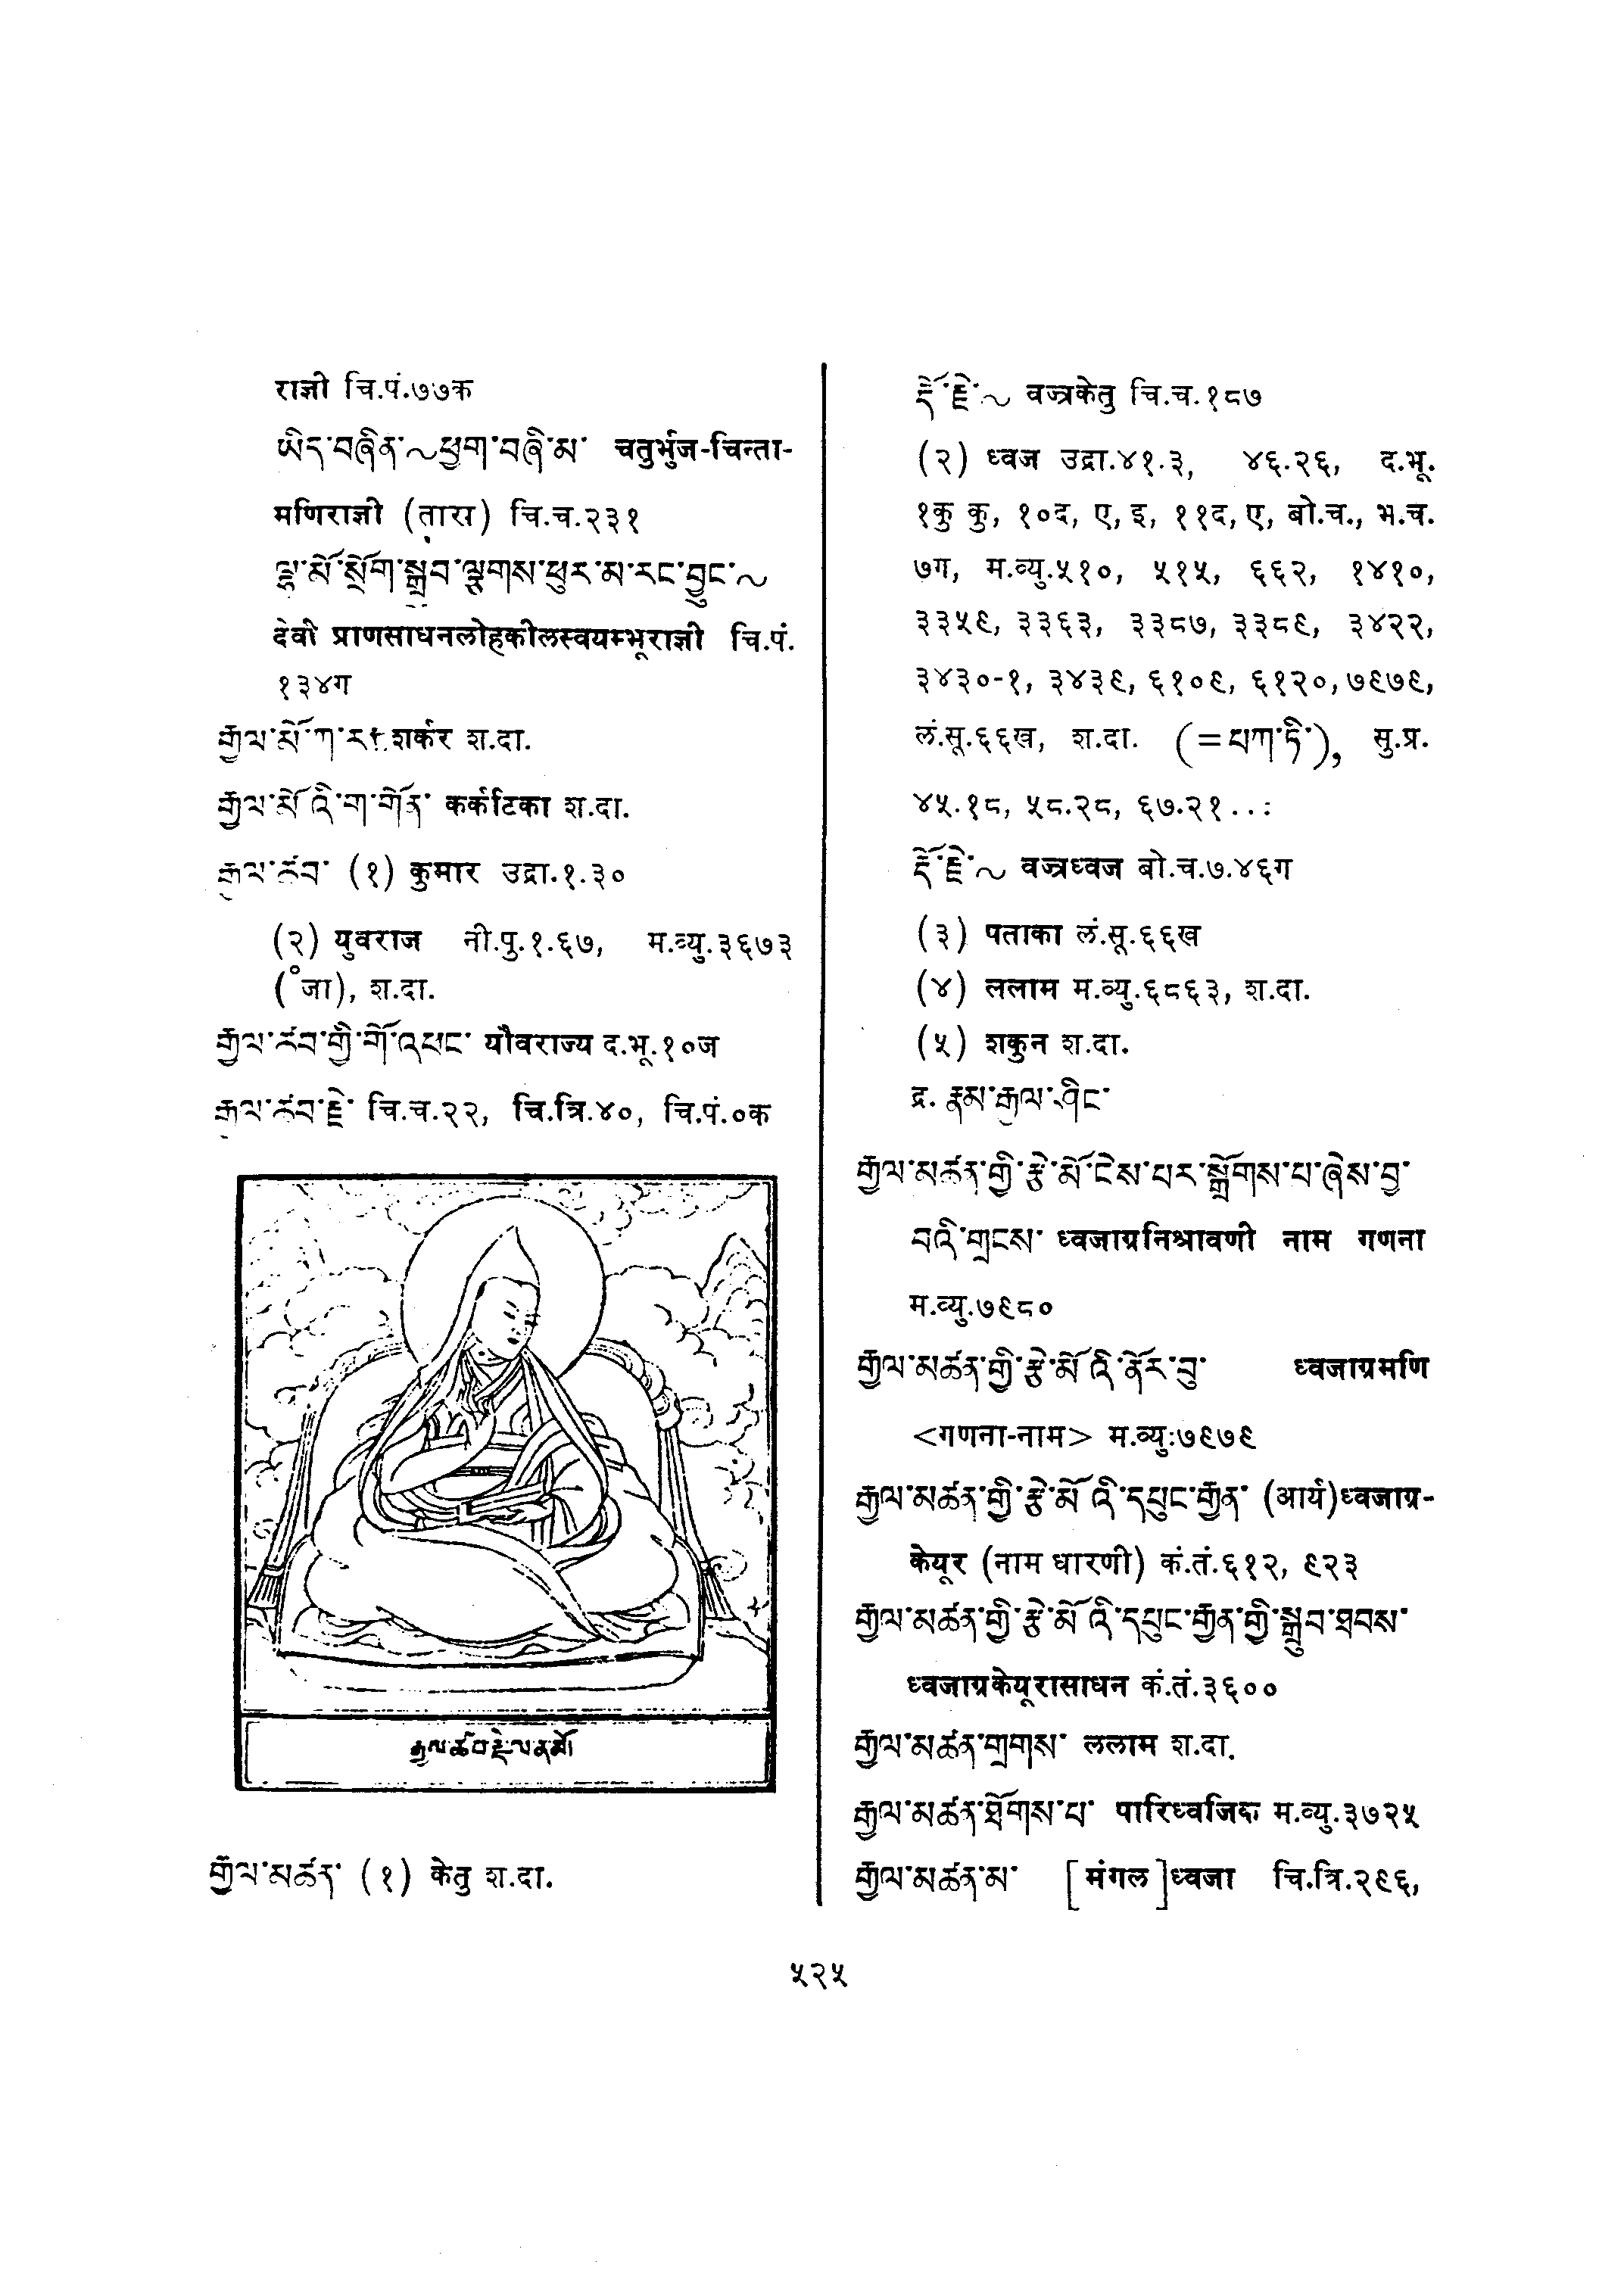 राज्ञी चि.पं.७७क
ཡིད་བཞིན་~ཕྱག་བཞི་མ་ चतुर्भुज-चिन्ता-
मणिराज्ञी (तारा) चि.च.२३१
ལྷ་མོ་སྲོག་སྒྲུབ་ལྕགས་ཕུར་མ་རང་བྱུང་~
देवी प्राणसाधनलोहकीलस्वयम्भूराज्ञी चि.पं.
१३४ग
རྒྱལ་མོ་ཀ་ར་ शर्कर श.दा.
རྒྱལ་མོའི་ག་གོན་ कर्कटिका श.दा.
རྒྱལ་ཚབ་ (१) कुमार उद्रा.१.३०
(२) युवराज नी.पु.१.६७, म.व्यु.३६७३
(॰जा), श.दा.
རྒྱལ་ཚབ་ཀྱི་གོ་འཕང་ यौवराज्य द.भू.१०ज
རྒྱལ་ཚབ་རྗེ་ चि.च.२२, चि.त्रि.४०, चि.पं.०क
རྒྱལ་ཚབ་རྗེ་ལ་ན་མོ།
རྒྱལ་མཚན་ (१) केतु श.दा.
རྡོ་རྗེ་~ वज्रकेतु चि.च.१८७
(२) ध्वज उद्रा.४१.३, ४६.२६, द.भू.
१कु कु, १०द, ए, इ, ११द, ए, बो.च., भ.च.
७ग, म.व्यु.५१०, ५१५, ६६२, १४१०,
३३५९, ३३६३, ३३८७, ३३८९, ३४२२,
३४३०-१, ३४३९, ६१०९, ६१२०, ७९७९,
लं.सू.६६ख, श.दा. (=པཀ་ཏི་), सु.प्र.
४५.१८, ५८.२८, ६७.२१...
རྡོ་རྗེ་~ वज्रध्वज बो.च.७.४६ग
(३) पताका लं.सू.६६ख
(४) ललाम म.व्यु.६८६३, श.दा.
(५) शकुन श.दा.
द्र. རྣམ་རྒྱལ་ཤིང་
རྒྱལ་མཚན་གྱི་རྩེ་མོ་ངེས་པར་སྒྲོགས་པ་ཞེས་བྱ་
བའི་གྲངས་ ध्वजाग्रनिश्रावणी नाम गणना
म.व्यु.७९८०
རྒྱལ་མཚན་གྱི་རྩེ་མོའི་ནོར་བུ་ ध्वजाग्रमणि
<गणना-नाम> म.व्यु.७९७९
རྒྱལ་མཚན་གྱི་རྩེ་མོའི་དཔུང་རྒྱན་ (आर्य)ध्वजाग्र-
केयूर (नाम धारणी) कं.तं.६१२, ९२३
རྒྱལ་མཚན་གྱི་རྩེ་མོའི་དཔུང་རྒྱན་གྱི་སྒྲུབ་ཐབས་
ध्वजाग्रकेयूरासाधन कं.तं.३६००
རྒྱལ་མཚན་གྲགས་ ललाम श.दा.
རྒྱལ་མཚན་ཐོགས་པ་ पारिध्वजिक म.व्यु.३७२५
རྒྱལ་མཚན་མ་ [मंगल]ध्वजा चि.त्रि.२९६,
५२५